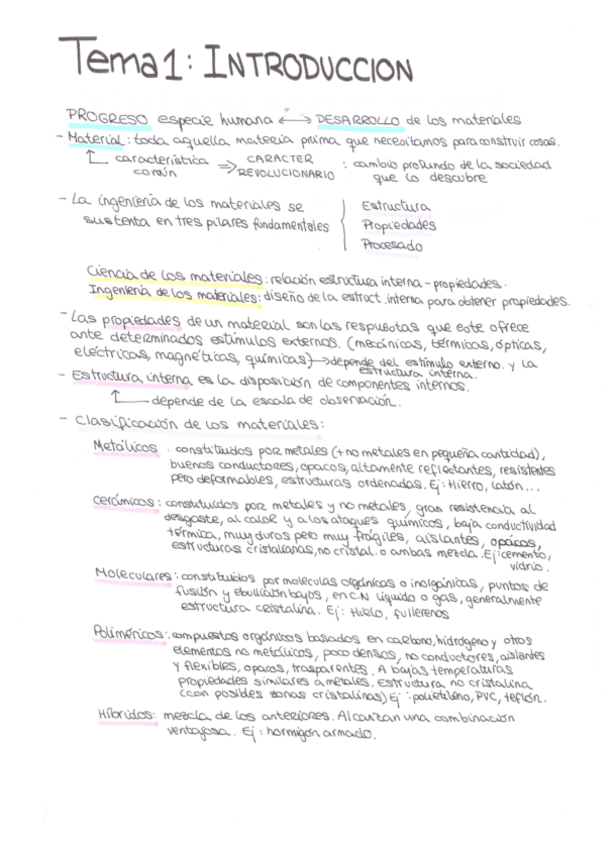 Tema 1: INTRODUCCION
PROGRESO especie humana ⟷ DESARROLLO de los materiales
- Material: toda aquella materia prima que necesitamos para construir cosas.
característica común ⇒ CARACTER REVOLUCIONARIO : cambio profundo de la sociedad que lo descubre
- La ingeniería de los materiales se
sustenta en tres pilares fundamentales
Estructura
Propiedades
Procesado
Ciencia de los materiales: relación estructura interna - propiedades.
Ingeniería de los materiales: diseño de la estruct. interna para obtener propiedades.
- Las propiedades de un material son las respuestas que este ofrece
ante determinados estímulos externos. (mecánicas, térmicas, ópticas,
eléctricas, magnéticas, químicas) → depende del estímulo externo. y la
estructura interna.
- Estructura interna es la disposición de componentes internos.
depende de la escala de observación.
- Clasificación de los materiales:
Metálicos : constituidos por metales (+ no metales en pequeña cantidad),
buenos conductores, opacos, altamente reflectantes, resistentes
pero deformables, estructuras ordenadas. Ej: Hierro, latón...
cerámicos: constituidos por metales y no metales, gran resistencia al
desgaste, al calor y a los ataques químicos, baja conductividad
térmica, muy duros pero muy frágiles, aislantes, opacos,
estructuras cristalianas, no cristal. o ambas mezcla. Ej: cemento,
vidrio.
Moleculares: constituidos por moleculas orgánicas o inorgánicas, puntos de
fusión y ebullición bajos, en C.N líquido o gas, generalmente
estructura cristalina. Ej: Hielo, fullerenos
Poliméricos: compuestos orgánicos basados en carbono, hidrógeno y otros
elementos no metálicos, poco densos, no conductores, aislantes
y flexibles, opacos, trasparentes. A bajas temperaturas
propiedades similares a metales. Estructura no cristalina
(con posibles zonas cristalinas) Ej: polietileno, PVC, teflón.
Híbridos: mezcla de los anteriores. Alcanzan una combinación
ventajosa. Ej: hormigón armado.